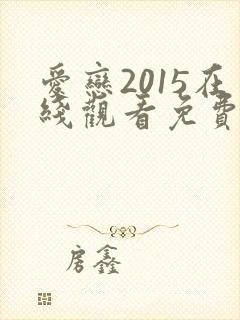 愛戀2015在
綫觀看免費
房鑫